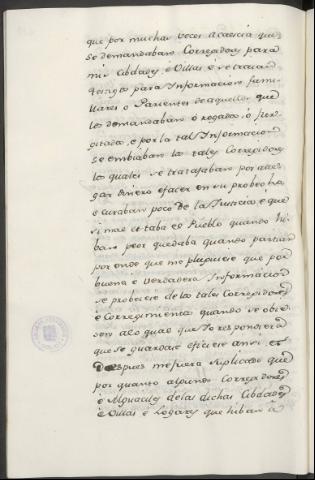 que por muchas veces acaecia que
se demandaban Corregidores para
mis Cibdades, é Villas é se tratavan
testigos para Informacion fami-
liares o Parientes de aquellos que
los demandaban ó rogados, ó
é por la tal Informacion
se embiaban los tales Corregidores
los quales se trabajaban por alle-
gar dinero efacer en su probecho,
e curaban poco de la Justicia, e que
si mal estaba el Pueblo quando
ban peor quedaba quando partian
por ende que me pluguiese que por
buena e verdadera Informacion
se probeiese de los tales Corregidores
é Corregimientos quando se obie-
sen alo qual que Yo respondiera
que se guardase eficiese ansi, et
Despues me fuera suplicado que
por quanto algunos Corregidores
é Alguaciles de las dichas Cibdades
é Villas é Logares que hiban á